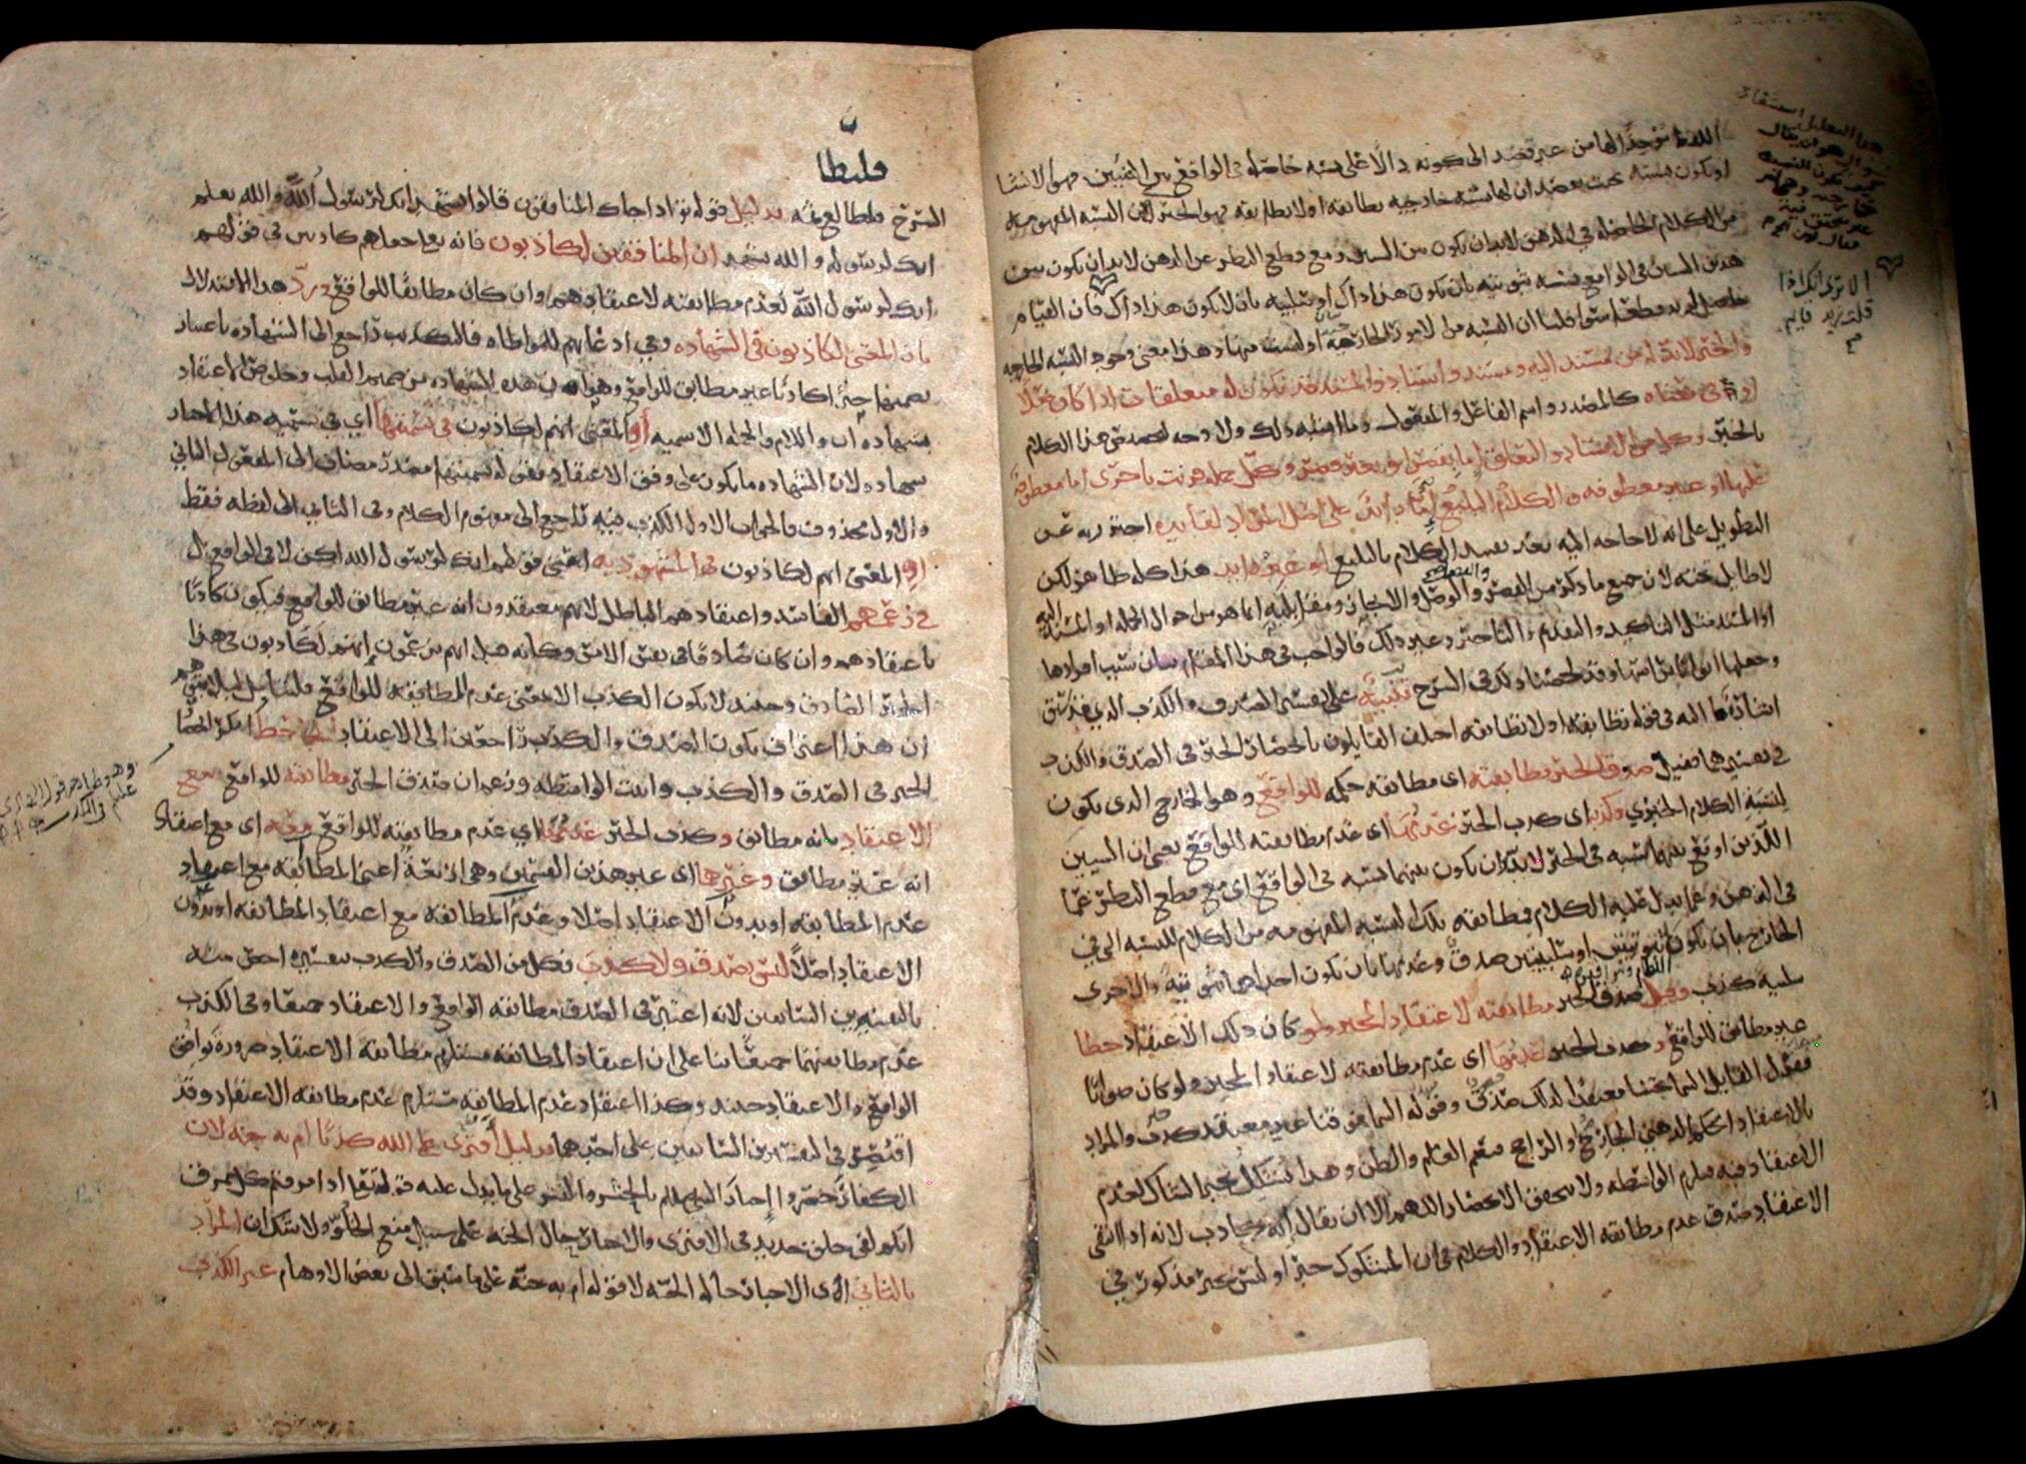 اللفظ موجدا لها من غير قصد الى كونه دالا على نسبة حاصلة في الواقع بين الشيئين وهو الانشا
او تكون نسبته بحيث يقصد ان لها نسبة خارجية تطابقه او لا تطابقه فهو الخبر لان النسبة المفهومة
من الكلام الحاصلة في الذهن لا بد ان تكون بين الشيئين ومع قطع النظر عن الذهن لا بد ان يكون بين
هذين الشيئين في الواقع نسبة ثبوتية بان يكون هذا ذاك او سلبية بان لا يكون هذا ذاك فان القيام
حاصل لزيد قطعا سوا قلنا ان النسبة من الامور الخارجية او ليست منها وهذا معنى وجود النسبة الخارجية
والخبر لا بد له من مسند اليه ومسند واسناد والمسند قد يكون له متعلقات اذا كان فعلا
او في معناه كالمصدر واسم الفاعل والمفعول وما اشبه ذلك ولا وجه لتخصيص هذا الكلام
بالخبر وكل من الاسناد والتعلق اما بقصر او بغير قصر وكل جملة قرنت باخرى اما معطوفة
عليها او غير معطوفة والكلام البليغ اما زايد على اصل المراد لفايدة احترز به عن
التطويل على انه لا حاجة اليه بعد تقييد الكلام بالبليغ او غير زايد هذا كله ظاهر لكن
لا طايل تحته لان جميع ما ذكر من القصر والوصل والفصل والايجاز ومقابليه انما هو من احوال الجملة او المسند اليه
او المسند مثل التاكيد والتقديم والتاخير وغير ذلك فالواجب في هذا المقام بيان سبب افرادها
وجعلها ابوابا براسها وقد لخصنا ذلك في الشرح تنبيه على تفسير الصدق والكذب الذي قد سبق
اشارة ما اليه في قوله تطابقه او لا تطابقه اختلف القايلون بانحصار الخبر في الصدق والكذب
في تفسيرهما فقيل صدق الخبر مطابقته اى مطابقة حكمه للواقع وهو الخارج الذى يكون
لنسبة الكلام الخبري وكذبه اى كذب الخبر عدمها اى عدم مطابقته للواقع يعنى ان الشيئين
اللذين اوقع بينهما نسبة في الخبر لا بد ان يكون بينهما نسبة في الواقع اى مع قطع النظر عما
في الذهن وعما يدل عليه الكلام فمطابقة تلك النسبة المفهومة من الكلام للنسبة التي في
الخارج بان يكونا ثبوتيتين او سلبيتين صدق وعدمها بان يكون احداهما ثبوتية والاخرى
سلبية كذب وقيل صدق الخبر مطابقته لاعتقاد المخبر ولو كان ذلك الاعتقاد خطا
غير مطابق للواقع وكذب الخبر عدمها اى عدم مطابقته لاعتقاد المخبر ولو كان صوابا
فقول القايل السما تحتنا معتقدا لذلك صدق وقوله السما فوقنا غير معتقد كذب والمراد
بالاعتقاد الحكم الذهني الجازم او الراجح فيعم العلم والظن وهذا يشكل بخبر الشاك لعدم
الاعتقاد فيه فيلزم الواسطة ولا يتحقق الانحصار اللهم الا ان يقال انه كاذب لانه اذا انتفى
الاعتقاد صدق عدم مطابقة الاعتقاد والكلام في ان المشكوك خبر او ليس بخبر مذكور في
هذا التعليل
سوال هو ان يقال
كيف تكون النسبة
خارجية
الا ترى انك اذا
قلت زيد قايم
فليطا
الشرح فليطالع ثمة بدليل قوله تع اذا جاك المنافقون قالوا نشهد انك لرسول الله والله يعلم
انك لرسوله والله يشهد ان المنافقين لكاذبون فانه تعالى جعلهم كاذبين في قولهم
انك لرسول الله لعدم مطابقته لاعتقادهم وان كان مطابقا للواقع ورد هذا الاستدلال
بان المعنى لكاذبون في الشهادة وفي ادعايهم للمواطاه فالتكذيب راجع الى الشهادة باعتبار
تضمنها خبرا كاذبا غير مطابق للواقع وهو ان هذه الشهادة من صميم القلب وخلوص الاعتقاد
بشهادة ان واللام والجملة الاسمية او المعنى انهم لكاذبون في تسميتها اي في تسمية هذا الاخبار
شهادة لان الشهادة ما يكون على وفق الاعتقاد فقوله تسميتها مصدر مضاف الى المفعول الثاني
والاول محذوف فالجواب الاول الكذب فيه راجع الى مفهوم الكلام وفي الثاني الى لفظه فقط
او المعنى انهم لكاذبون في المشهود به اعني قولهم انك لرسول الله لكن لا في الواقع بل
في زعمهم الفاسد واعتقادهم الباطل لانهم يعتقدون انه غير مطابق للواقع فيكون كاذبا
باعتقادهم وان كان صادقا في نفس الامر وكانه قيل انهم يزعمون انهم لكاذبون في هذا
الخبر الصادق وحينئذ لا يكون الكذب الا بمعنى عدم المطابقة للواقع فليتامل ليلا يتوهم
ان هذا اعتراف بكون الصدق والكذب راجعين الى الاعتقاد الجاحظ انكر انحصار
الخبر في الصدق والكذب واثبت الواسطة وزعم ان صدق الخبر مطابقته للواقع مع
الاعتقاد بانه مطابق وكذب الخبر عدمها اي عدم مطابقته للواقع معه اى مع اعتقاد
انه غير مطابق وغيرها اى غير هذين القسمين وهي اربعة اعني المطابقة مع اعتقاد
عدم المطابقة او بدون الاعتقاد اصلا وعدم المطابقة مع اعتقاد المطابقة او بدون
الاعتقاد اصلا ليس بصدق ولا كذب فكل من الصدق والكذب بتفسيره اخص منه
بالتفسيرين السابقين لانه اعتبر في الصدق مطابقة الواقع والاعتقاد جميعا وفي الكذب
عدم مطابقتهما جميعا بنا على ان اعتقاد المطابقة يستلزم مطابقة الاعتقاد ضرورة توافق
الواقع والاعتقاد حينئذ وكذا اعتقاد عدم المطابقة يستلزم عدم مطابقة الاعتقاد وقد
اقتصر في التفسيرين السابقين على احدهما بدليل افترى على الله كذبا ام به جنة لان
الكفار حصروا اخبار النبي عليه السلام بالحشر والنشر على ما يدل عليه قوله تع اذا مزقتم كل ممزق
انكم لفي خلق جديد في الافترى والاخبار حال الجنة على سبيل منع الخلو ولا شك ان المراد
بالثاني اى الاخبار حال الجنة لا قوله ام به جنة على ما سبق الى بعض الاوهام غير الكذب
وهو ظاهر قول